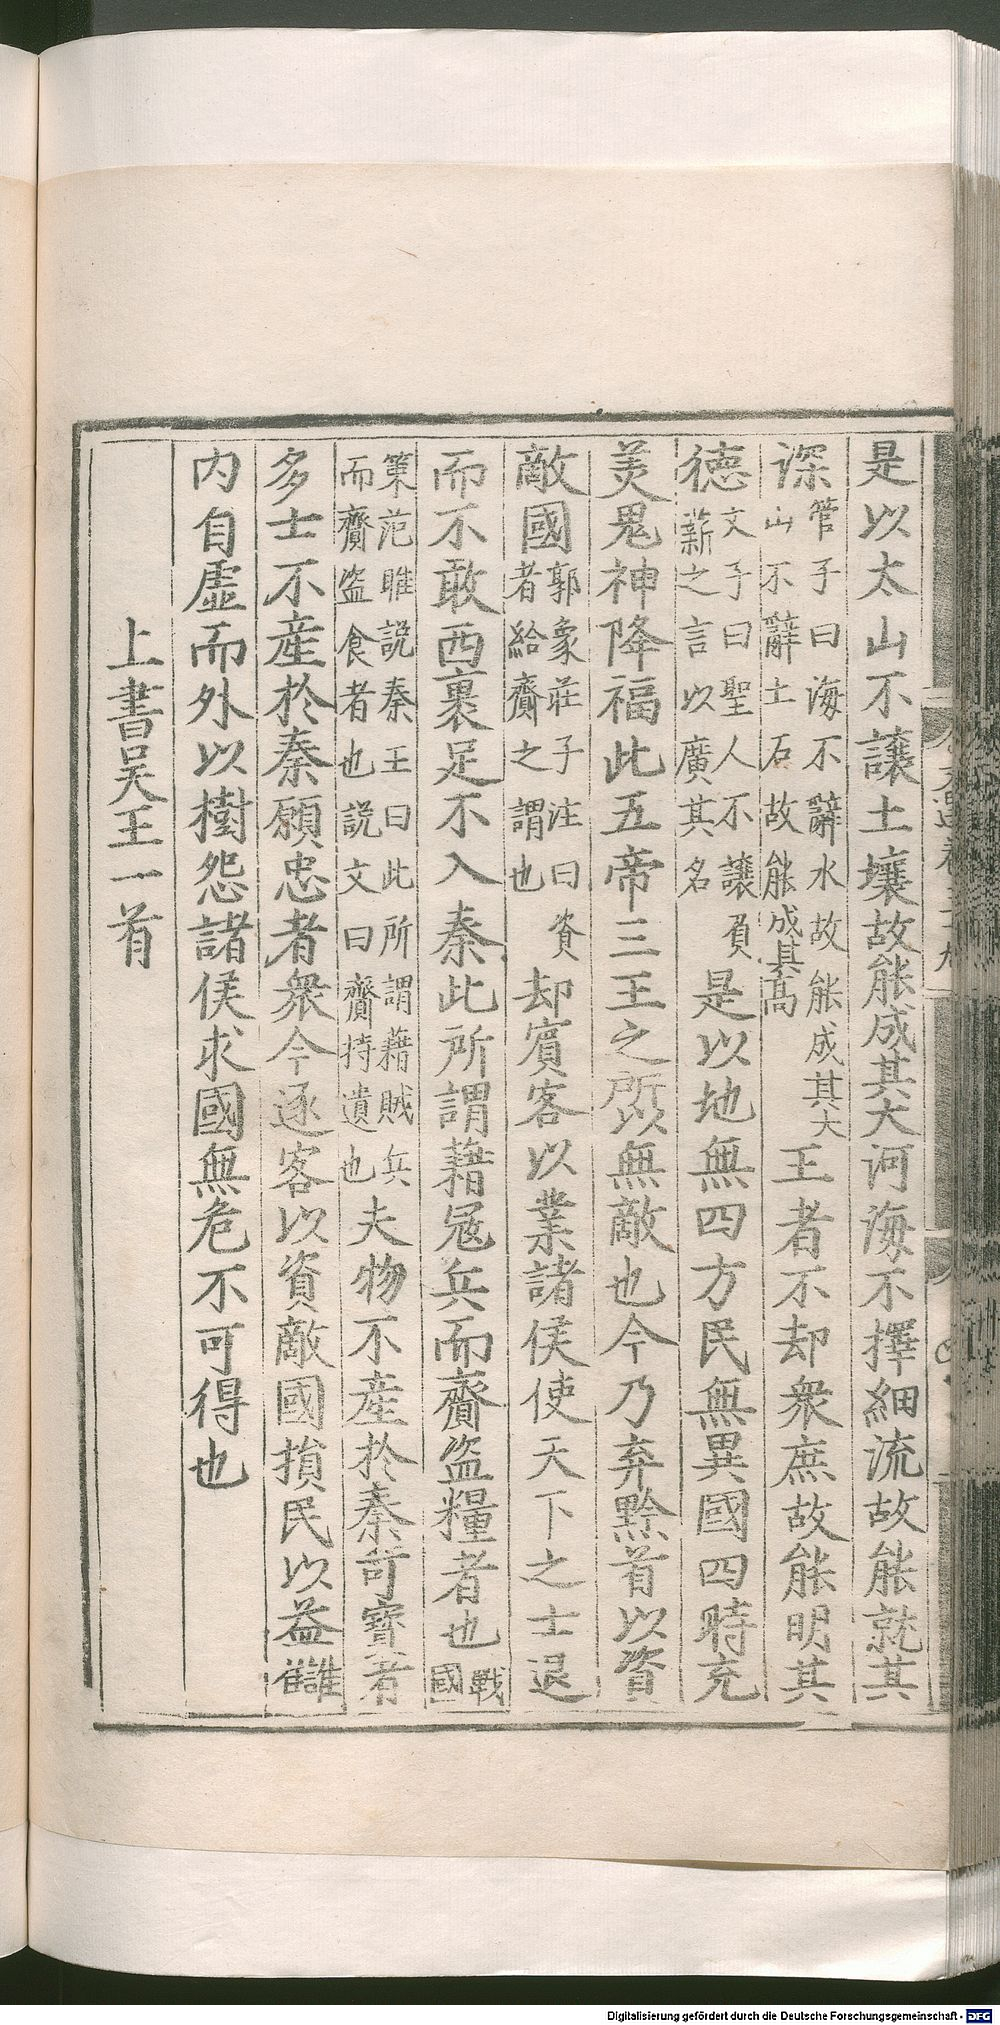 是以太山不讓土壤故能成其大河海不擇細流故能就其
深管子曰海不辭水故能成其大山不辭土石故能成其高王者不却衆庶故能明其
德文子曰聖人不讓負薪之言以廣其名是以地無四方民無異國四時充
美鬼神降福此五帝三王之所以無敵也今乃弃黔首以資
敵國郭象莊子注曰資者給齎之謂也却賓客以業諸侯使天下之士退
而不敢西裹足不入秦此所謂藉寇兵而齎盗糧者也戰國
策范睢説秦王曰此所謂藉賊兵而齎盗食者也説文曰齎持遺也夫物不產於秦可寶者
多士不產於秦願忠者衆今逐客以資敵國損民以益讎
內自虛而外以樹怨諸侯求國無危不可得也
上書吴王一首
Digitalisierung gefördert durch die Deutsche Forschungsgemeinschaft - DFG